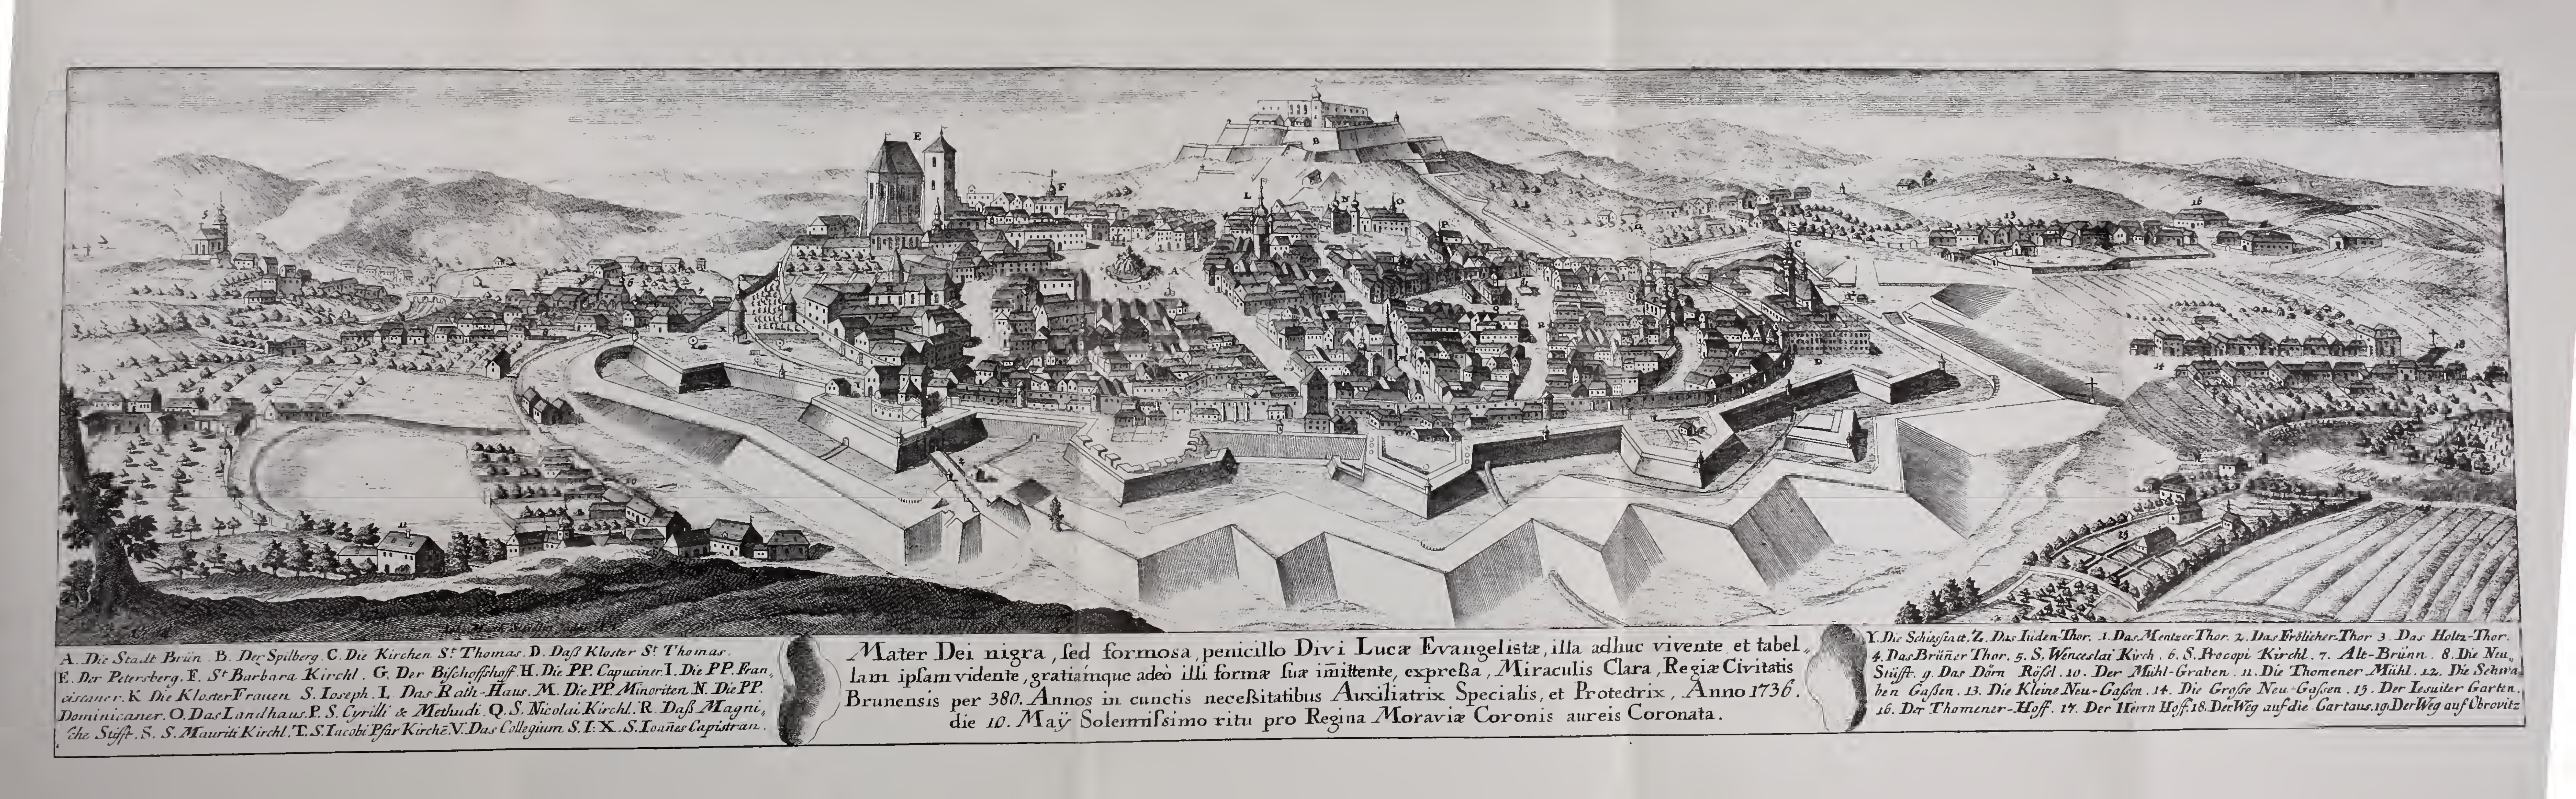 E
B
F
L
N
O
P
A
C
D
X
5
6
7
13
16
14
18
15
10
11
A. Die Stadt Brün. B. Der Spilberg. C. Die Kirchen St. Thomas. D. Daß Kloster St. Thomas.
E. Der Petersberg. F. St. Barbara Kirchl. G. Der Bischoffshoff. H. Die PP. Capuciner. I. Die PP. Fran„
ciscaner. K Die Kloster Frauen S. Ioseph. L. Das Rath-Haus. M. Die PP. Minoriten. N. Die PP.
Dominicaner. O. Das Landhaus. P. S. Cyrilli & Methudi. Q. S. Nicolai Kirchl. R. Daß Magni„
sche Stifft. S. S. Mauriti Kirchl. T. S. Iacobi Pfar Kirche. V. Das Collegium S. I: X. S. Ioañes Capistran.
Mater Dei nigra, sed formosa, penicillo Divi Lucæ Evangelistæ, illa adhuc vivente et tabel„
lam ipsam vidente, gratiamque adeò illi formæ suæ im̃ittente, expreßa, Miraculis Clara, Regiæ Civitatis
Brunensis per 380. Annos in cunctis neceßitatibus Auxiliatrix Specialis, et Protectrix, Anno 1736.
die 10. Maÿ Solemnissimo ritu pro Regina Moraviæ Coronis aureis Coronata.
Y. Die Schiesstatt. Z. Das Iuden-Thor. 1. Das Mentzer Thor. 2. Das Frölicher-Thor 3. Das Holtz-Thor.
4. Das Brüner Thor. 5. S. Wenceslai Kirch. 6. S. Procopi Kirchl. 7. Alt-Brünn. 8. Die Neu„
Stifft. 9. Das Dörn Rössl. 10. Der Mühl-Graben. 11. Die Thomener Mühl. 12. Die Schwa„
ben Gaßen. 13. Die Kleine Neu-Gaßen. 14. Die Große Neu-Gaßen. 15. Der Iesuiter Garten.
16. Der Thomener-Hoff. 17. Der Herrn Hoff. 18. Der Weg auf die Cartaus. 19. Der Weg auf Obrovitz